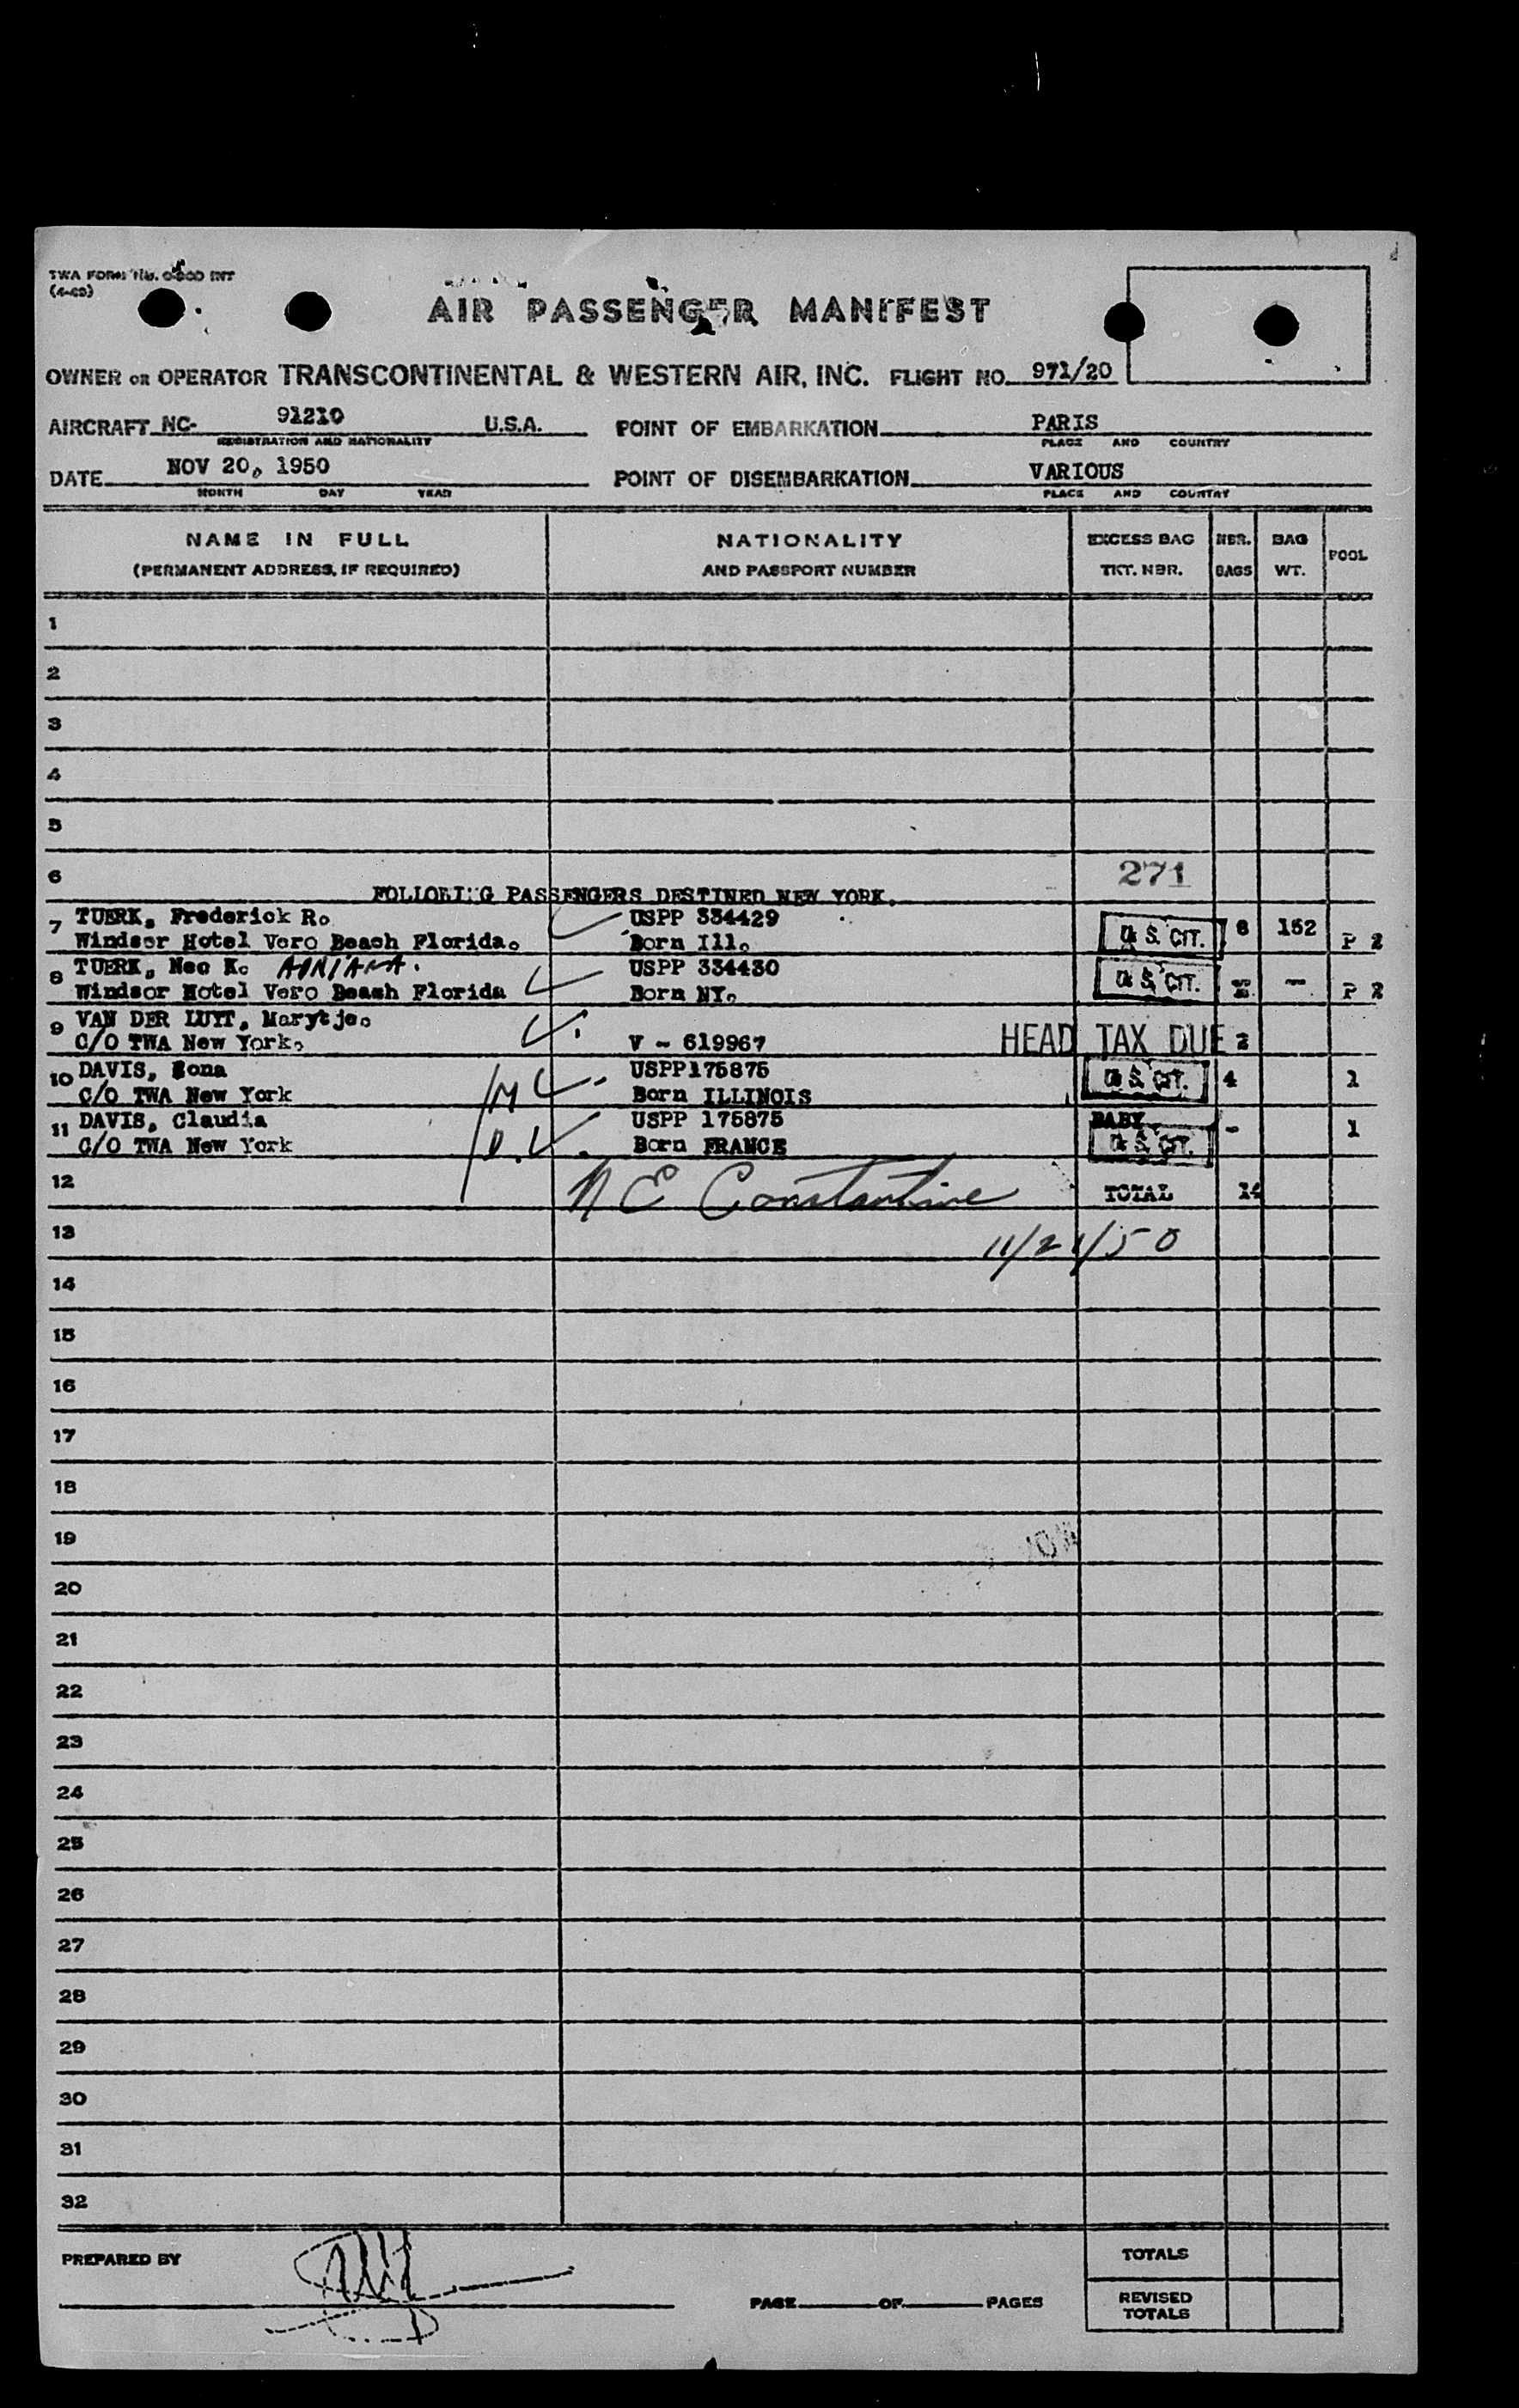 TWA FORM No. INT
AIR PASSENGER MANIFEST
OWNER OR OPERATOR TRANSCONTINENTAL & WESTERN AIR, INC. FLIGHT NO. 971/20
AIRCRAFT NC- 91210 U.S.A. POINT OF EMBARKATION PARIS
REGISTRATION AND NATIONALITY PLACE AND COUNTRY
DATE NOV 20, 1950 POINT OF DISEMBARKATION VARIOUS
MONTH DAY YEAR PLACE AND COUNTRY
NAME IN FULL NATIONALITY EXCESS BAG NBR. BAG POOL
(PERMANENT ADDRESS, IF REQUIRED) AND PASSPORT NUMBER TKT. NBR. BAGS WT.
1
2
3
4
5
6 271
FOLLOWING PASSENGERS DESTINED NEW YORK.
7 TUERK, Frederick R. USPP 334429 U.S. CIT. 8 152 P 2
Windsor Hotel Vero Beach Florida. Born Ill.
8 TUERK, K. ADRIANA. USPP 334430 U.S. CIT. - P 2
Windsor Hotel Vero Beach Florida Born NY.
9 VAN DER LUYT, Marytje.
C/O TWA New York. V - 619967 HEAD TAX DUE 2
10 DAVIS, USPP175875 U.S. CIT. 4 1
C/O TWA New York M Born ILLINOIS
11 DAVIS, Claudia USPP 175875 BABY - 1
C/O TWA New York D. Born FRANCE U.S. CIT.
12 N E Constantine TOTAL 14
13 11/21/50
14
15
16
17
18
19
20
21
22
23
24
25
26
27
28
29
30
31
32
PREPARED BY TOTALS
PAGE OF PAGES REVISED
TOTALS